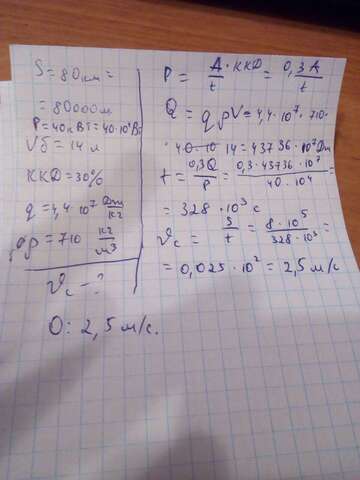 S = 80км =
= 80000м
P = 40кВт = 40·10³Вт
Vб = 14л
ККД = 30%
q = 4,4·10⁷ Дж/кг
ρ = 710 кг/м³
𝜗c - ?
О: 2,5 м/с.
P = A·ККД/t = 0,3A/t
Q = qρV = 4,4·10⁷·710·
14 = 43736·10⁷Дж
t = 0,3Q/P = 0,3·43736·10⁷/40·10⁴ =
= 328·10³ с
𝜗c = S/t = 8·10⁵/328·10³ =
= 0,025·10² = 2,5 м/с